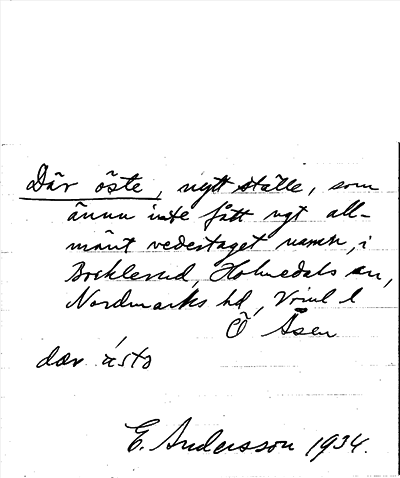 Där öste, nytt ställe, som
ännu inte fått ngt all-
mänt vedertaget namn, i
Bocklerud, Holmedals sn,
Nordmarks hd, Vrml l
Ö Åsen
dær ásto
E. Andersson 1934.